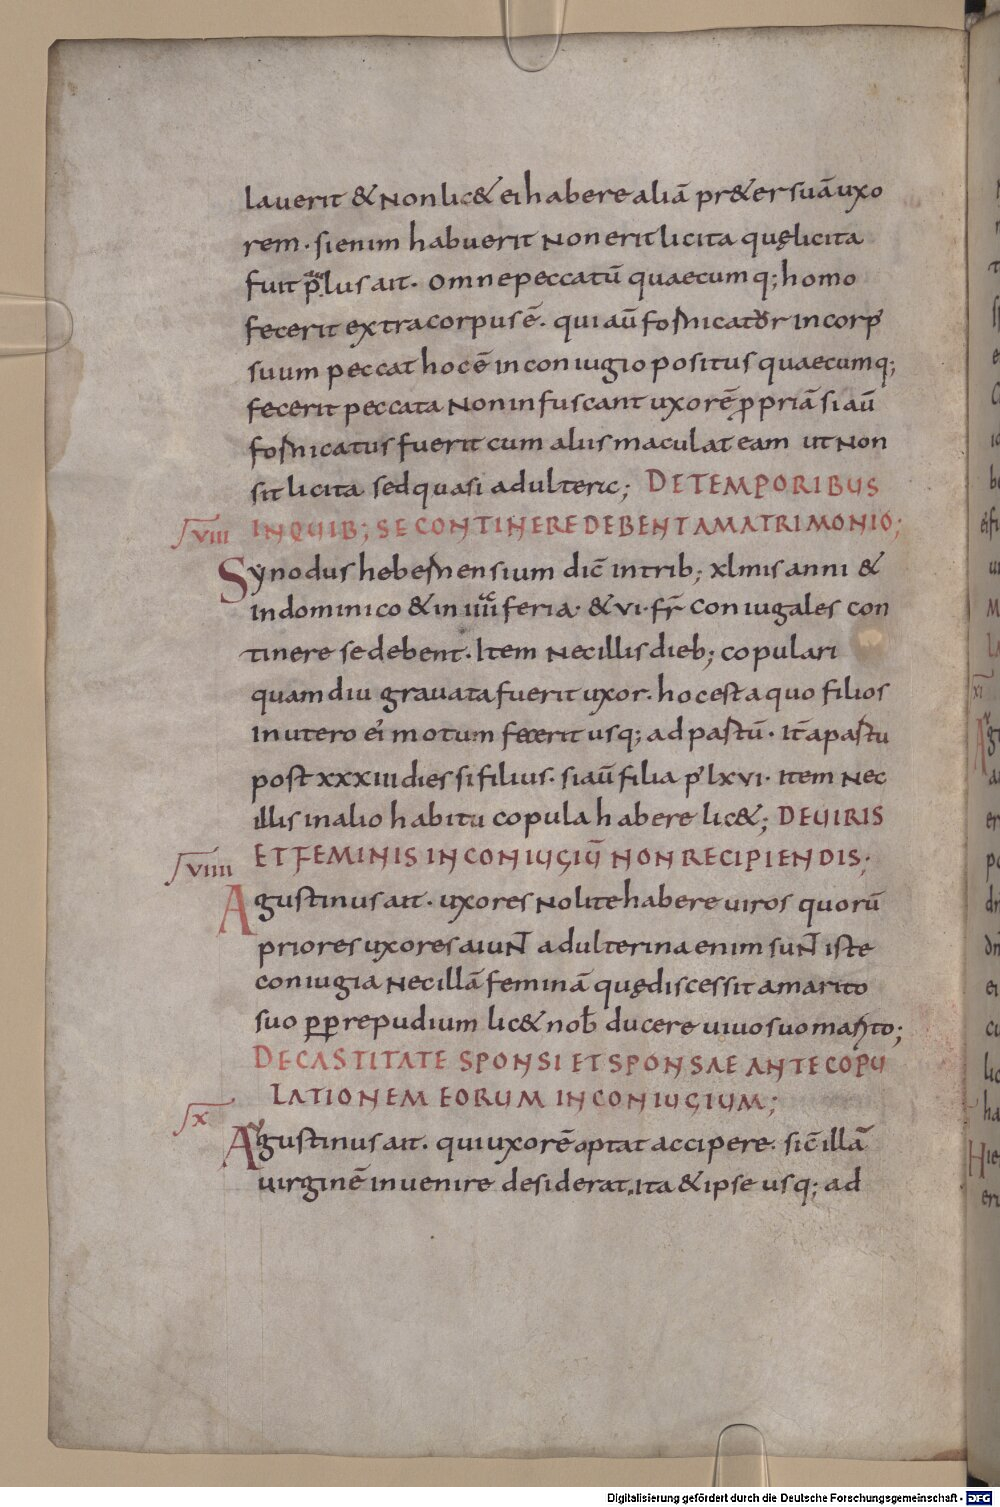 lauerit & non lic& ei habere aliā pr&er suā uxo
rem · si enim habuerit non erit licita quę licita
fuit paulus ait · omne peccatū quaecumq; homo
fecerit extra corpus ē · qui aū fornicator in corp'
suum peccat hoc ē in coniugio positus quaecumq;
fecerit peccata non infuscant uxorē propriā si aū
fornicatus fuerit cum aliis maculat eam ut non
sit licita sed quasi adulteric; DE TEMPORIBUS
VIII INQUIB; SE CONTINERE DEBENT A MATRIMONIO;
Synodus hebernensium dic̄ in trib; xlmis anni &
in dominico & in iiii feria · & vi · fr̄ coniugales con
tinere se debent · Item nec illis dieb; copulari
quamdiu grauata fuerit uxor · hoc est a quo filios
in utero ei' motum fecerit usq; ad partū · It̄ a partu
post xxxiii dies si filius · si aū filia p' lxvi · Item nec
illis in alio habitu copula habere lic&; DE UIRIS
VIIII ET FEMINIS IN CONIUGIŪ NON RECIPIENDIS;
Agustinus ait · uxores nolite habere uiros quorū
priores uxores aiuNT adulterina enim suNT iste
coniugia nec illā feminā quę discessit a marito
suo pp repudium lic& nob̄ ducere uiuo suo marito;
DE CASTITATE SPONSI ET SPONSAE ANTE COPU
X LATIONEM EORUM IN CONIUGIUM;
Augustinus ait · qui uxorē optat accipere · sic̄ illā
uirginē inuenire desiderat · ita & ipse usq; ad
Digitalisierung gefördert durch die Deutsche Forschungsgemeinschaft - DFG